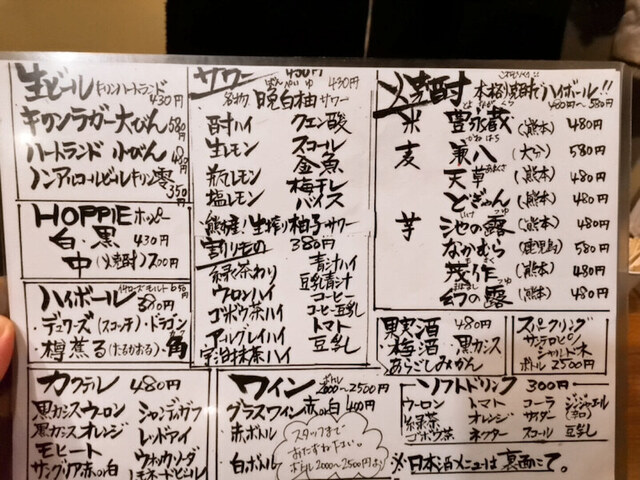 生ビール キリンハートランド 430円
キリンラガー大びん 580円
ハートランド 小びん 480円
ノンアルコールビール キリン零 350円
HOPPIE ホッピー
白・黒 430円
中(焼酎) 200円
ハイボール 380円
・デュワーズ(スコッチ)・ドラゴン
・樽薫る(たるかおる)・角
サワー 430円
名物 晩白柚サワー 430円
酎ハイ クエン酸
生レモン スコール
瓶レモン 金魚
塩レモン 梅干し
バイス
熊産!生搾り柚子サワー
割りもの 380円
緑茶わり 青汁ハイ
ウーロンハイ 豆乳青汁
ゴボウ茶ハイ コーヒー
コーヒー豆乳
アールグレイハイ トマト
宇治抹茶ハイ 豆乳
焼酎 本格焼酎でハイボール!!
400円〜580円
米 豊永蔵(熊本) 480円
麦 兼八(大分) 580円
天草(熊本) 480円
どぎゃん(熊本) 480円
芋 池の露(熊本) 480円
なかむら(鹿児島) 580円
茂作(熊本) 480円
幻の露(熊本) 480円
果実酒 480円
梅酒 黒カシス
あらごしみかん
スパークリング
サンテロピノ
シャルドネ
ボトル 2500円
カクテル 480円
黒カシスウーロン シャンディガフ
黒カシスオレンジ レッドアイ
モヒート ウォッカソーダ
サングリア赤or白 レモネードビール
ワイン ボトル 2000〜2500円
グラスワイン 赤or白 400円
赤ボトル
白ボトル
スタッフまで
おたずね下さい。
ボトル2000〜2500円より
ソフトドリンク 300円
ウーロン トマト コーラ ジンジャエール(辛口)
緑茶 オレンジ サイダー
ゴボウ茶 ネクター スコール 豆乳
※日本酒メニューは裏面にて。